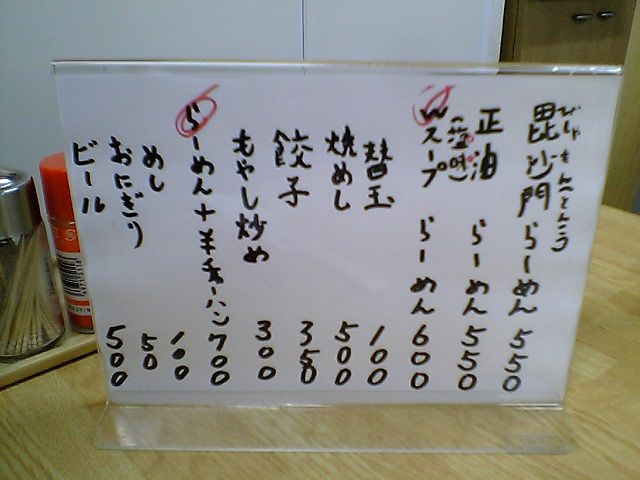 毘沙門らーめん 550
びしゃもんとんこつ
正油 らーめん 550
Wスープ らーめん 600
(塩味)
替玉 100
焼めし 500
餃子 350
もやし炒め 300
らーめん+半チャーハン 700
めし 100
おにぎり 50
ビール 500